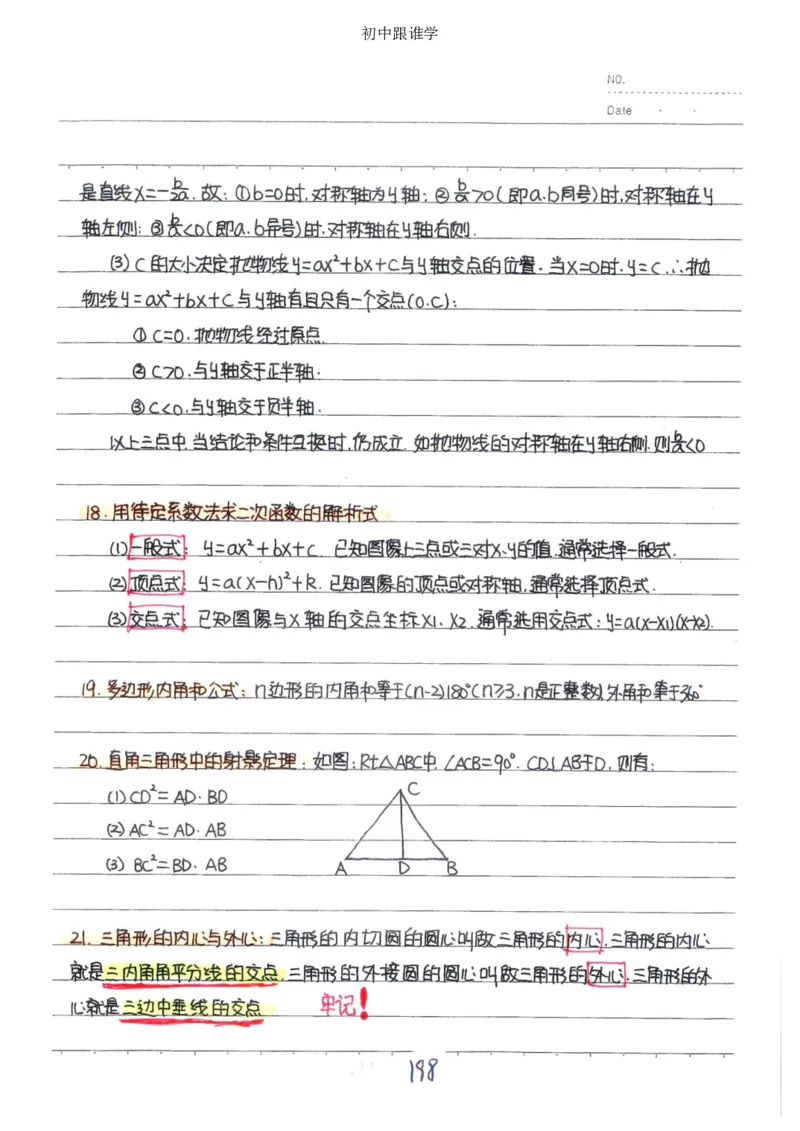 初中跟谁学
NO.
Date
是直线x=-b/2a. 故: ①b=0时,对称轴为y轴; ②b/a>0(即a.b同号)时,对称轴在y
轴左侧; ③b/a<0(即a.b异号)时,对称轴在y轴右侧.
(3) C的大小决定抛物线y=ax²+bx+c与y轴交点的位置. 当x=0时.y=c.∴抛
物线y=ax²+bx+c与y轴有且只有一个交点(0.c):
① c=0.抛物线经过原点.
② c>0.与y轴交于正半轴.
③ c<0.与y轴交于负半轴.
以上三点中.当结论和条件互换时,仍成立. 如抛物线的对称轴在y轴右侧.则b/a<0
18.用待定系数法求二次函数的解析式
(1)一般式: y=ax²+bx+c. 已知图像上三点或三对x.y的值.通常选择一般式.
(2)顶点式: y=a(x-h)²+k. 已知图像的顶点或对称轴.通常选择顶点式.
(3)交点式: 已知图像与x轴的交点坐标x1、x2.通常选用交点式: y=a(x-x1)(x-x2).
19.多边形内角和公式: n边形的内角和等于(n-2)180°(n≥3.n是正整数).外角和等于360°
20.直角三角形中的射影定理: 如图: Rt△ABC中. ∠ACB=90°. CD⊥AB于D.则有:
(1) CD²=AD·BD
(2) AC²=AD·AB
(3) BC²=BD·AB
C
A D B
21.三角形的内心与外心: 三角形的内切圆的圆心叫做三角形的内心.三角形的内心
就是三内角角平分线的交点.三角形的外接圆的圆心叫做三角形的外心.三角形的外
心就是三边中垂线的交点 牢记!
198